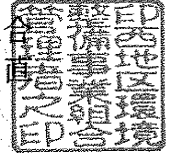 印西地区環境
整備事業組合
管理者之印
合
直